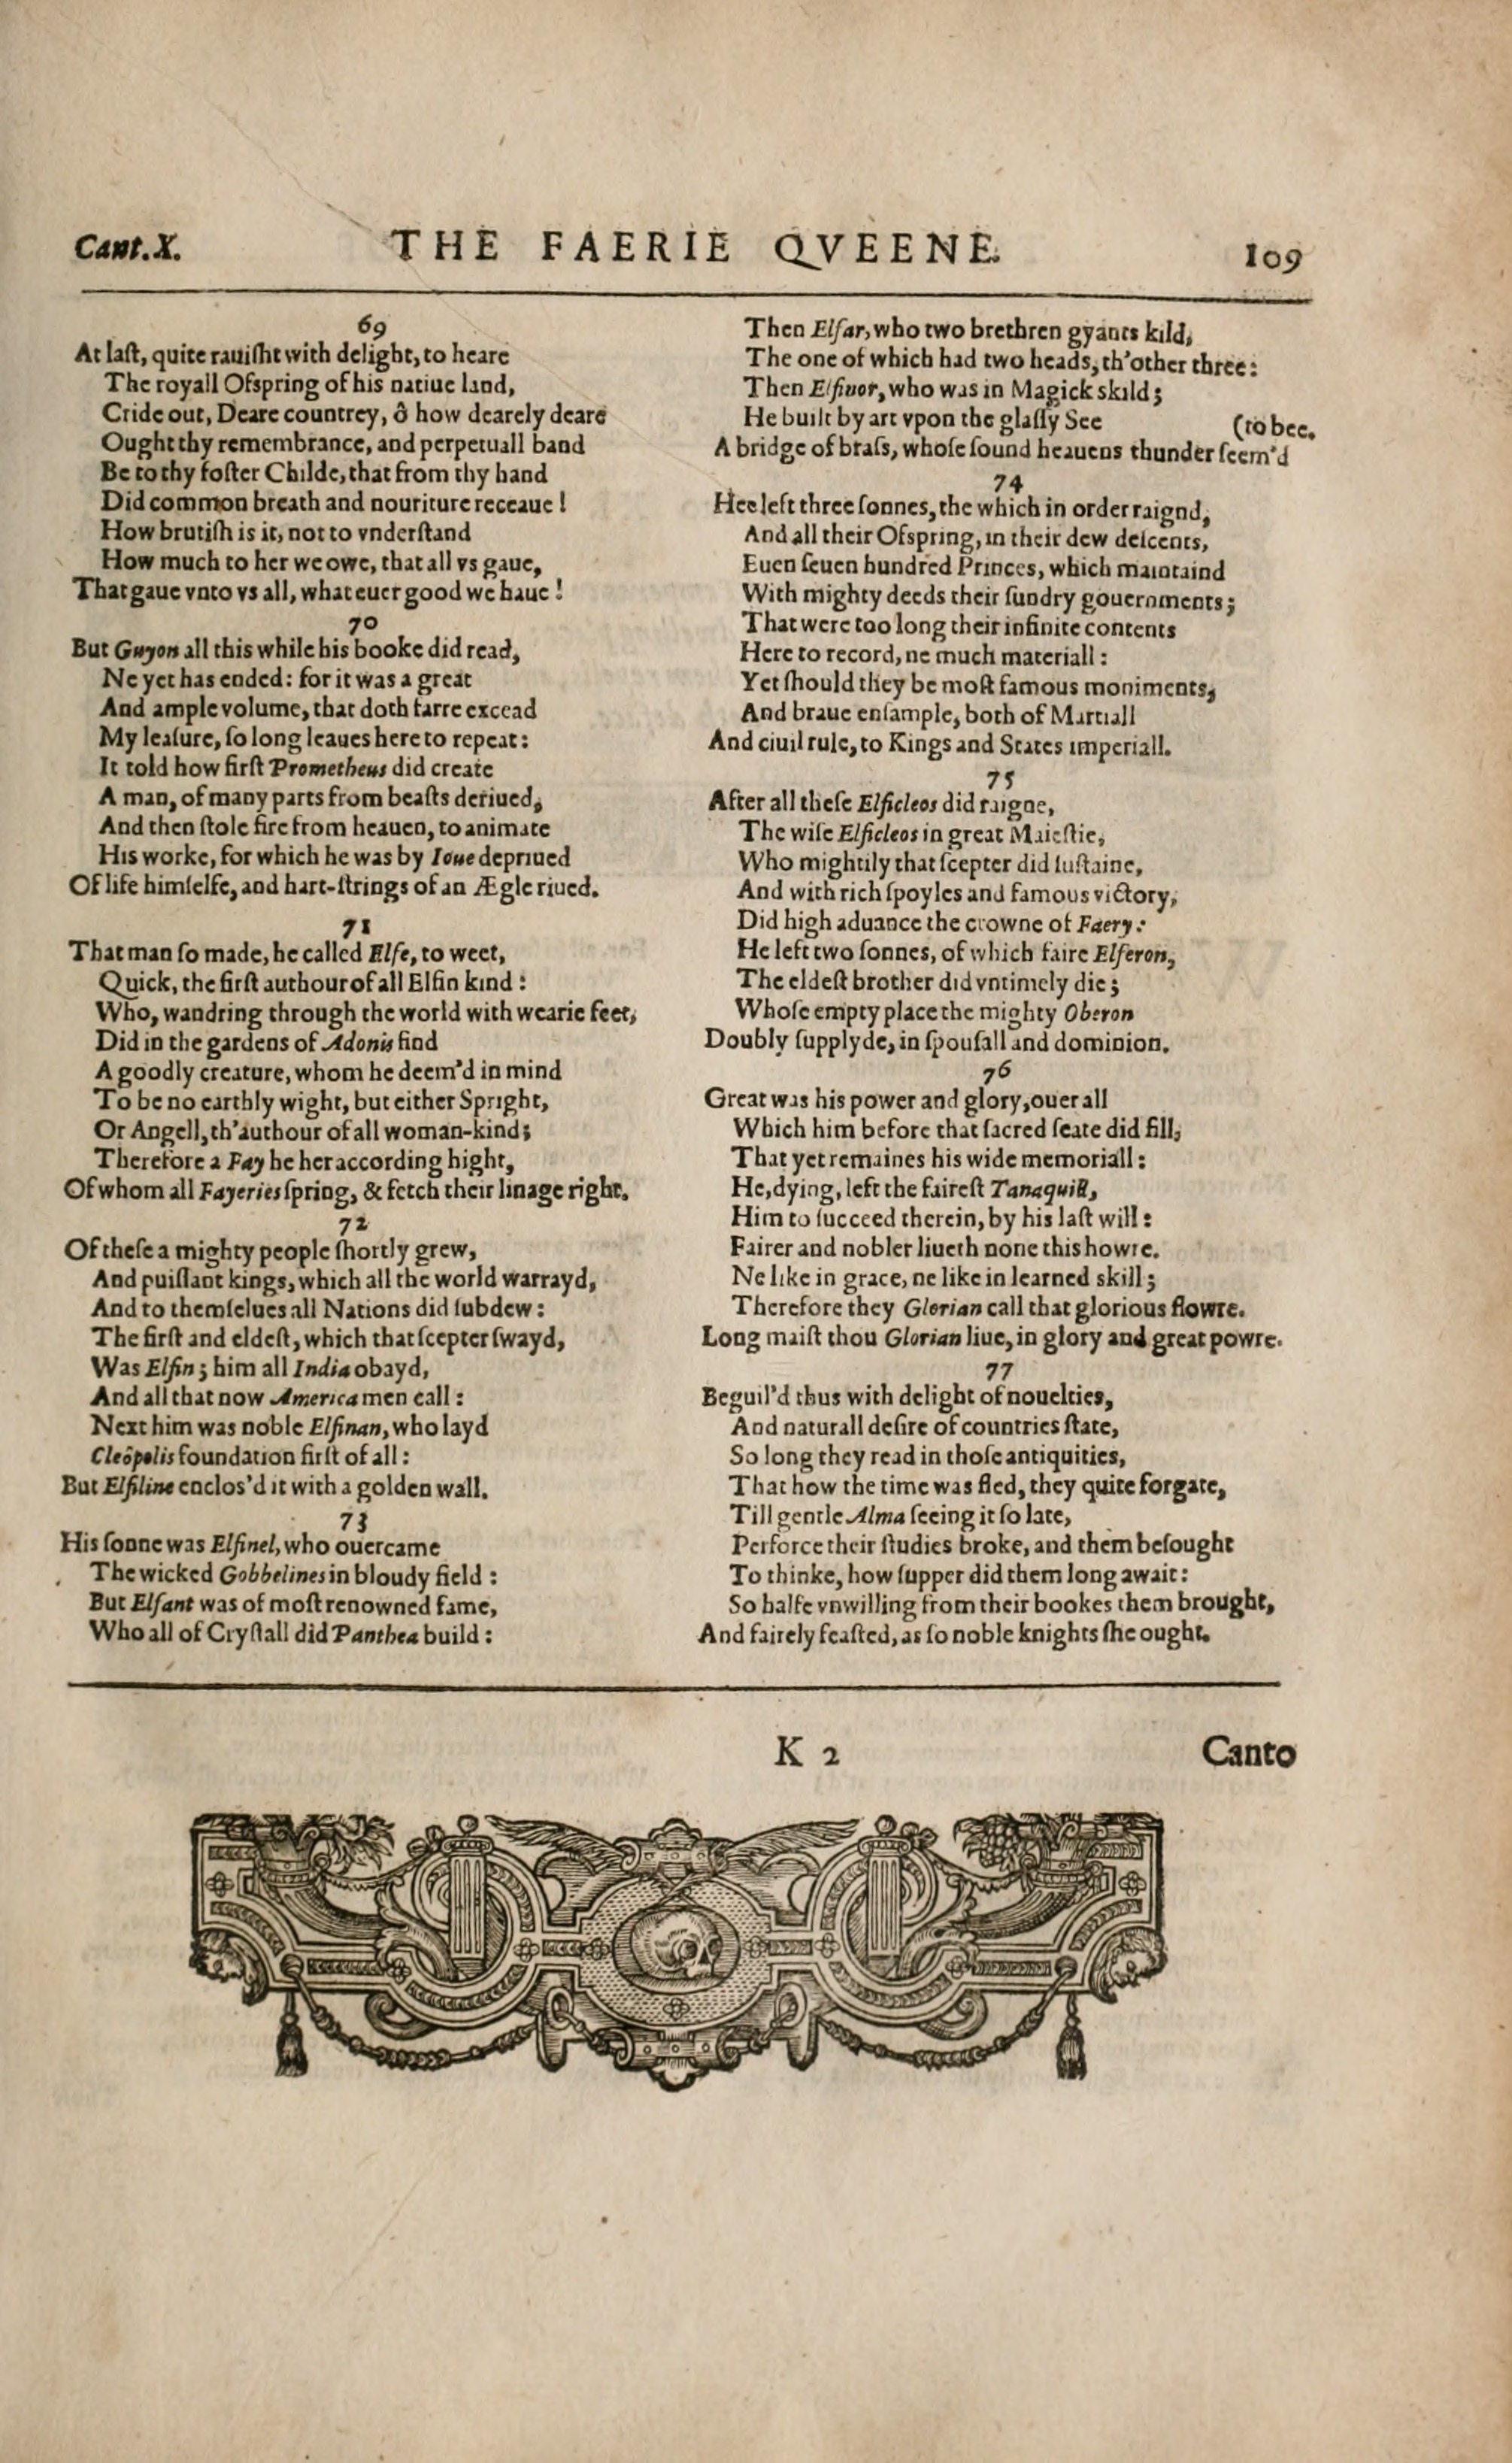 Cant.X. THE FAERIE QVEENE. 109
69
At laſt, quite rauiſht with delight, to heare
The royall Ofspring of his natiue land,
Cride out, Deare countrey, ô how dearely deare
Ought thy remembrance, and perpetuall band
Be to thy foſter Childe, that from thy hand
Did common breath and nouriture receaue!
How brutiſh is it, not to vnderſtand
How much to her we owe, that all vs gaue,
That gaue vnto vs all, what euer good we haue!
70
But Guyon all this while his booke did read,
Ne yet has ended: for it was a great
And ample volume, that doth farre excead
My leaſure, ſo long leaues here to repeat:
It told how firſt Prometheus did create
A man, of many parts from beaſts deriued,
And then ſtole fire from heauen, to animate
His worke, for which he was by Ioue depriued
Of life himſelfe, and hart-ſtrings of an Ægle riued.
71
That man ſo made, he called Elfe, to weet,
Quick, the firſt authour of all Elfin kind:
Who, wandring through the world with wearie feet,
Did in the gardens of Adonis find
A goodly creature, whom he deem'd in mind
To be no earthly wight, but either Spright,
Or Angell, th'authour of all woman-kind;
Therefore a Fay he her according hight,
Of whom all Fayeries ſpring, & fetch their linage right.
72
Of theſe a mighty people ſhortly grew,
And puiſſant kings, which all the world warrayd,
And to themſelues all Nations did ſubdew:
The firſt and eldeſt, which that ſcepter ſwayd,
Was Elfin; him all India obayd,
And all that now America men call:
Next him was noble Elfinan, who layd
Cleôpolis foundation firſt of all:
But Elfiline enclos'd it with a golden wall.
73
His ſonne was Elfinel, who ouercame
The wicked Gobbelines in bloudy field:
But Elfant was of moſt renowned fame,
Who all of Cryſtall did Panthea build:
Then Elfar, who two brethren gyants kild,
The one of which had two heads, th'other three:
Then Elfinor, who was in Magick skild;
He built by art vpon the glaſſy See (to bee.
A bridge of braſs, whoſe ſound heauens thunder ſeem'd
74
Hee left three ſonnes, the which in order raignd,
And all their Ofspring, in their dew deſcents,
Euen ſeuen hundred Princes, which maintaind
With mighty deeds their ſundry gouernments;
That were too long their infinite contents
Here to record, ne much materiall:
Yet ſhould they be moſt famous moniments,
And braue enſample, both of Martiall
And ciuil rule, to Kings and States imperiall.
75
After all theſe Elficleos did raigne,
The wiſe Elficleos in great Maieſtie,
Who mightily that ſcepter did ſuſtaine,
And with rich ſpoyles and famous victory,
Did high aduance the crowne of Faery:
He left two ſonnes, of which faire Elferon,
The eldeſt brother did vntimely die;
Whoſe empty place the mighty Oberon
Doubly ſupplyde, in ſpouſall and dominion.
76
Great was his power and glory, ouer all
Which him before that ſacred ſeate did fill,
That yet remaines his wide memoriall:
He, dying, left the faireſt Tanaquill,
Him to ſucceed therein, by his laſt will:
Fairer and nobler liueth none this howre.
Ne like in grace, ne like in learned skill;
Therefore they Glorian call that glorious flowre.
Long maiſt thou Glorian liue, in glory and great powre.
77
Beguil'd thus with delight of nouelties,
And naturall deſire of countries ſtate,
So long they read in thoſe antiquities,
That how the time was fled, they quite forgate,
Till gentle Alma ſeeing it ſo late,
Perforce their ſtudies broke, and them beſought
To thinke, how ſupper did them long await:
So halfe vnwilling from their bookes them brought,
And fairely feaſted, as ſo noble knights ſhe ought.
K 2 Canto